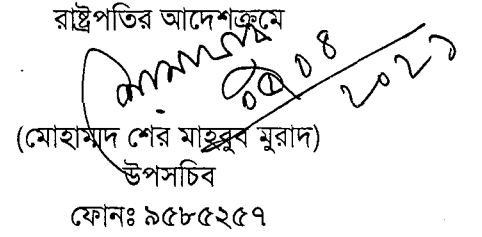 রাষ্ট্রপতির আদেশক্রমে
(মোহাম্মদ শের মাহবুব মুরাদ)
উপসচিব
ফোনঃ ৯৫৮৫২৫৭